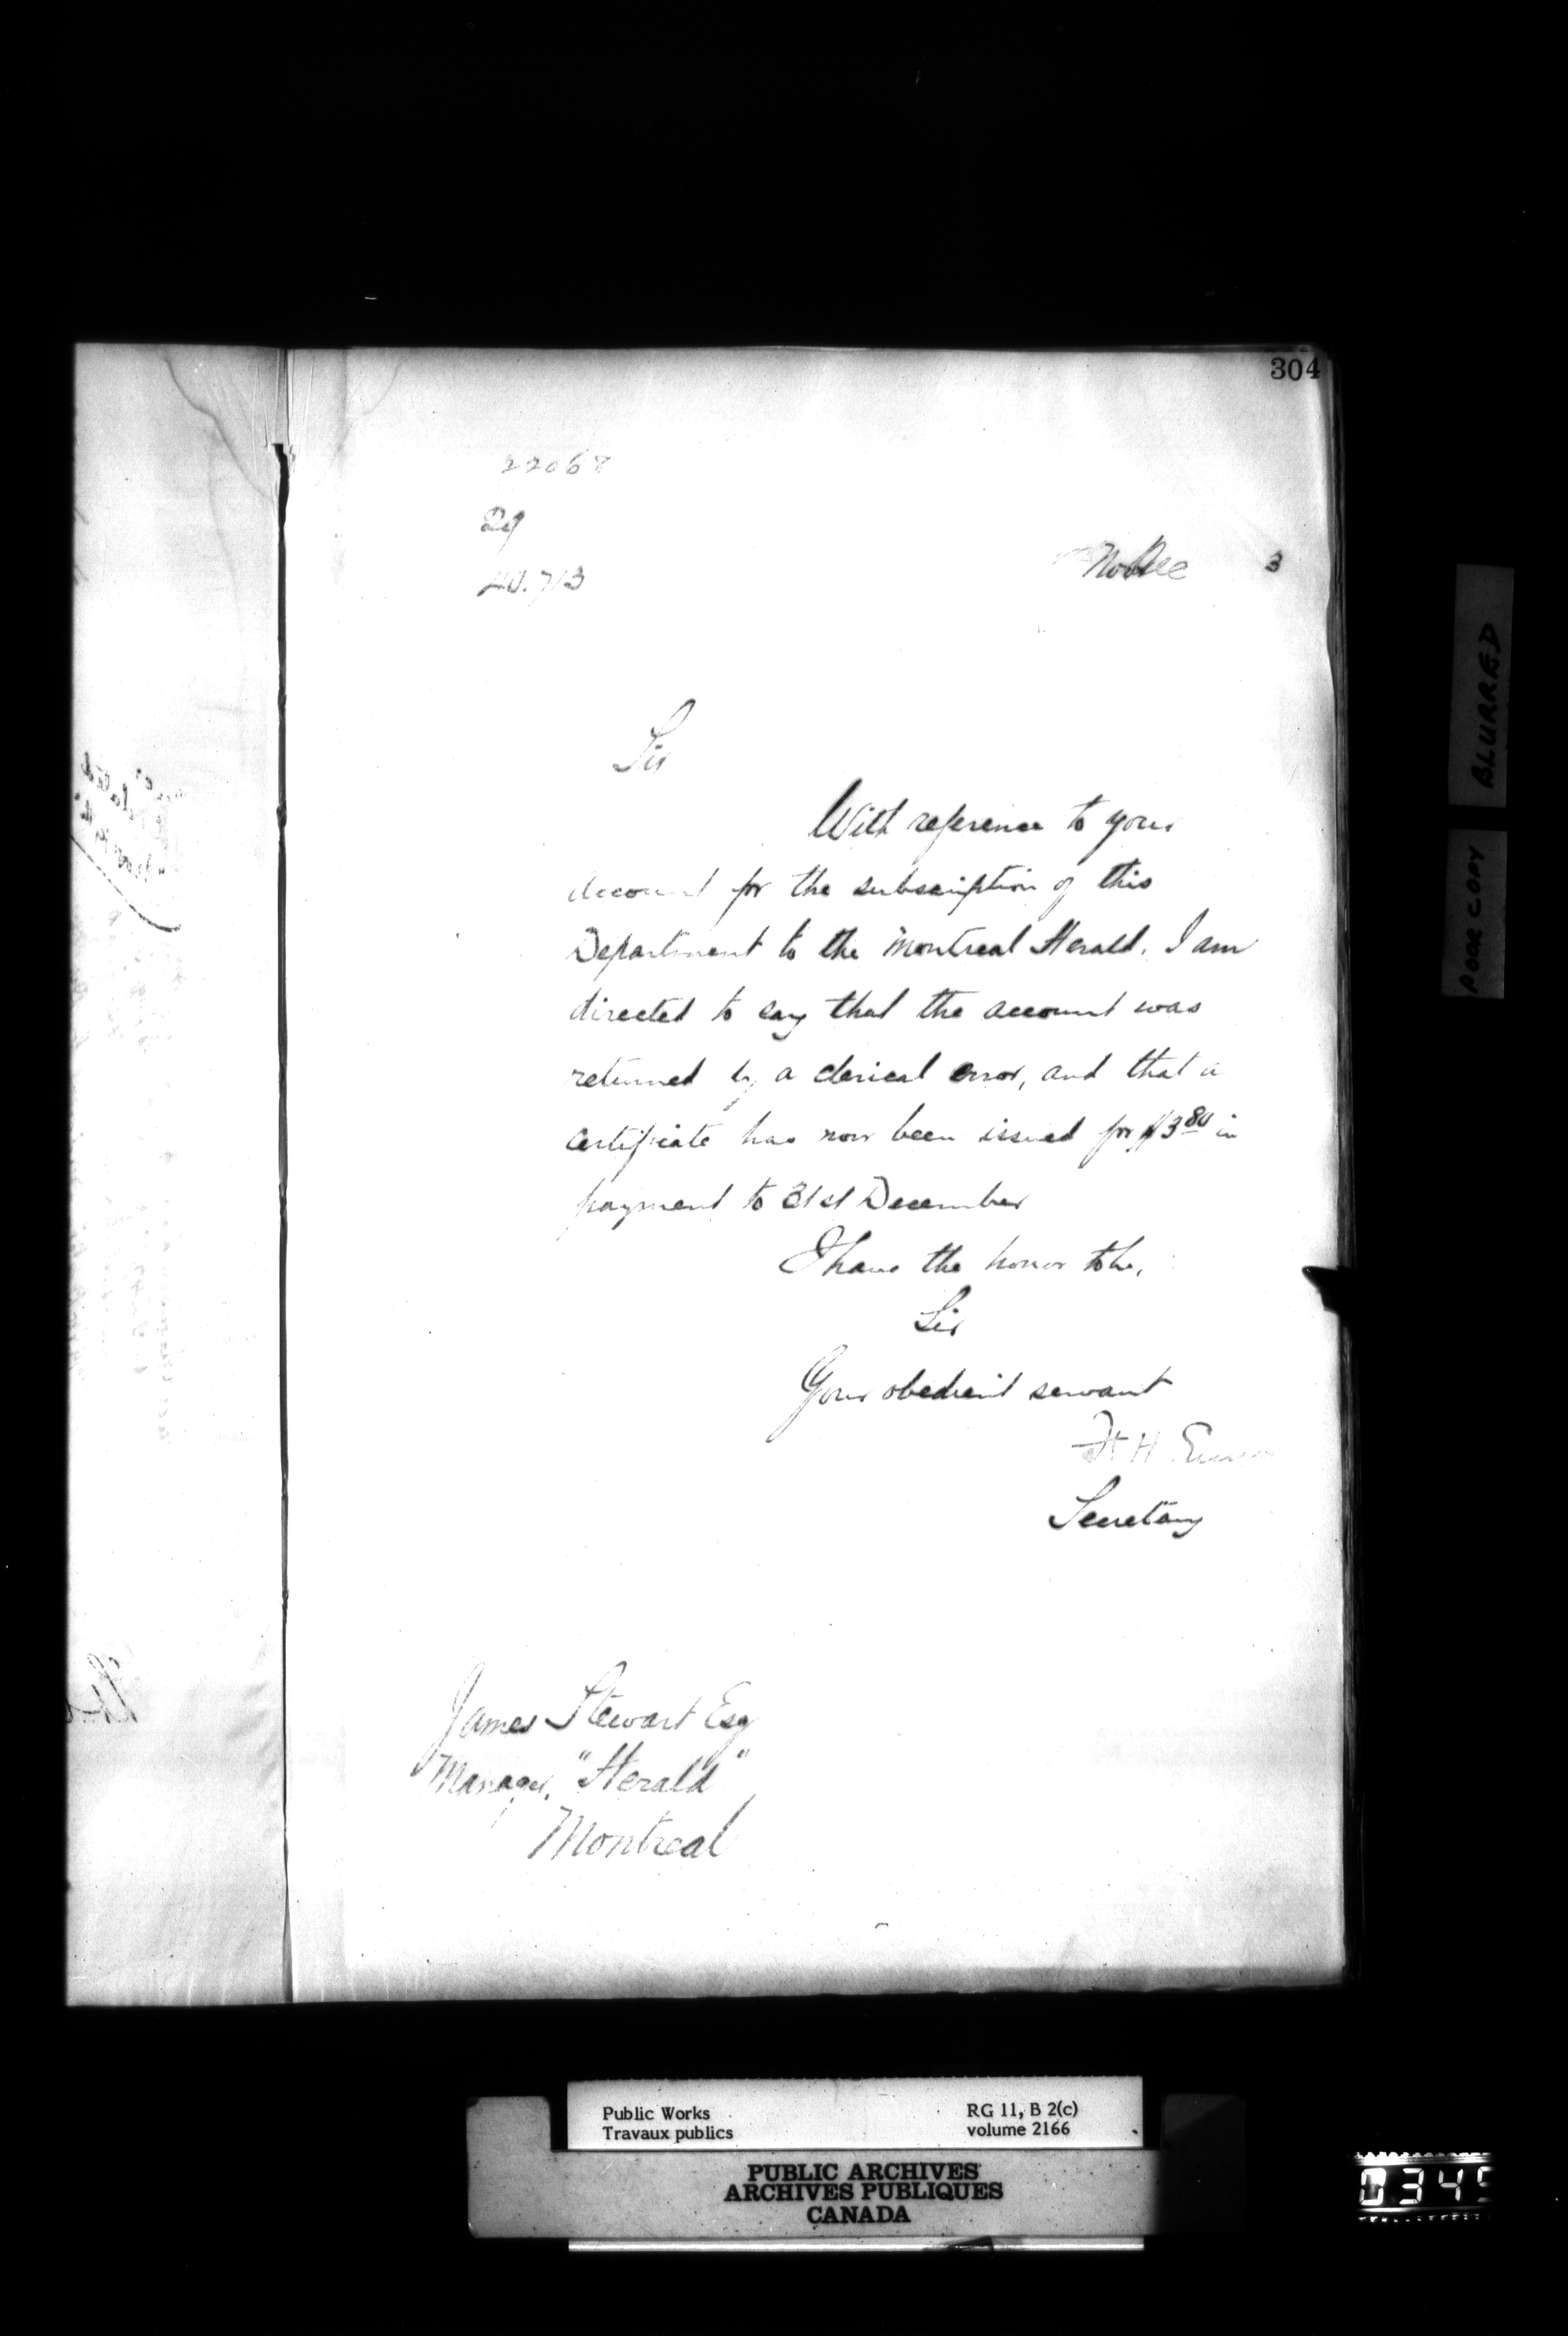 304
22067
29
40.713
Dec 3
Sir
With reference to your
account for the subscription of this
Department to the Montreal Herald. I am
directed to say that the account was
returned by a clerical error, and that a
certificate has now been issued for $3 80 in
payment to 31st December
I have the honor to be,
Sir
Your obedient servant
F H Ennis
Secretary
James Stewart Esq
Manager, "Herald"
Montreal
BLURRED
POOR COPY
Public Works
Travaux publics
RG 11, B 2(c)
volume 2166
PUBLIC ARCHIVES
ARCHIVES PUBLIQUES
CANADA
0345